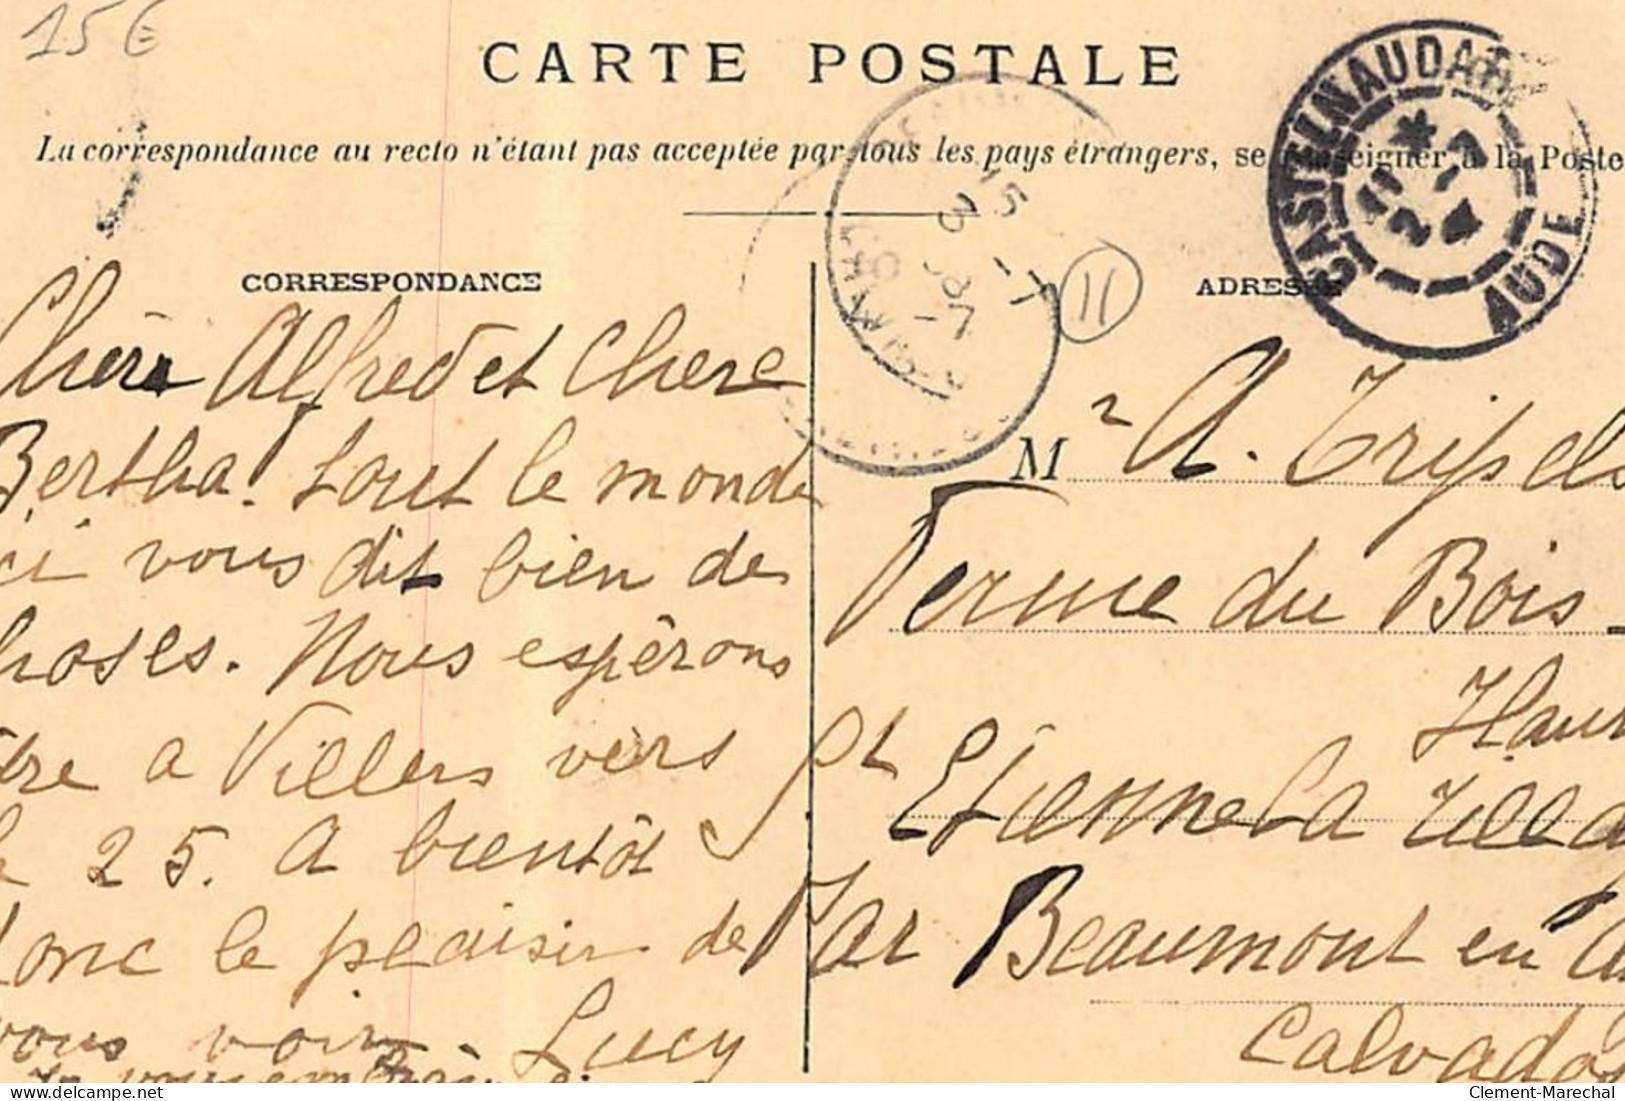 15 €
CARTE POSTALE
La correspondance au recto n'étant pas acceptée par tous les pays étrangers, se renseigner à la Poste
CASTELNAUDARY
AUDE
11
CORRESPONDANCE
Chèr Alfred et Chere
Bertha. tout le monde
ci vous dit bien de
hoses. Nous espérons
tre a Villers vers
25. A bientôt
donc le plaisir de
vous voir. Lucy
ADRESSE
Mr A. Tripels
Ferme du Bois
Haur
pt Etienne La Till
Par Beaumont en
Calvados
delcampe.net
Clement-Marechal